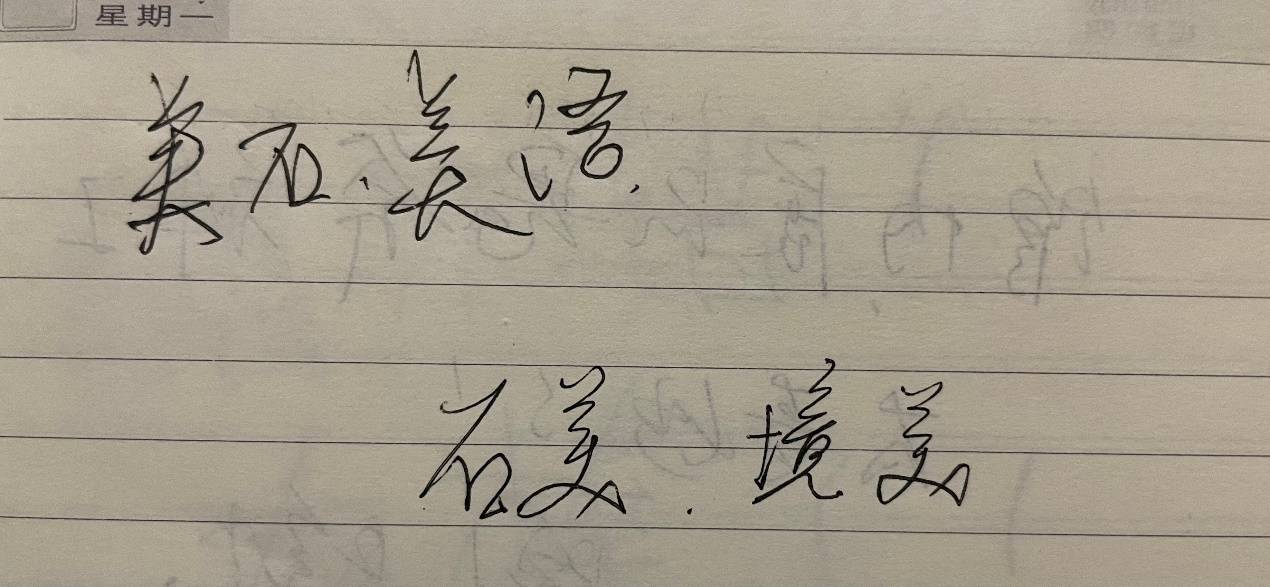 星期一
美石.美语.
石美.境美